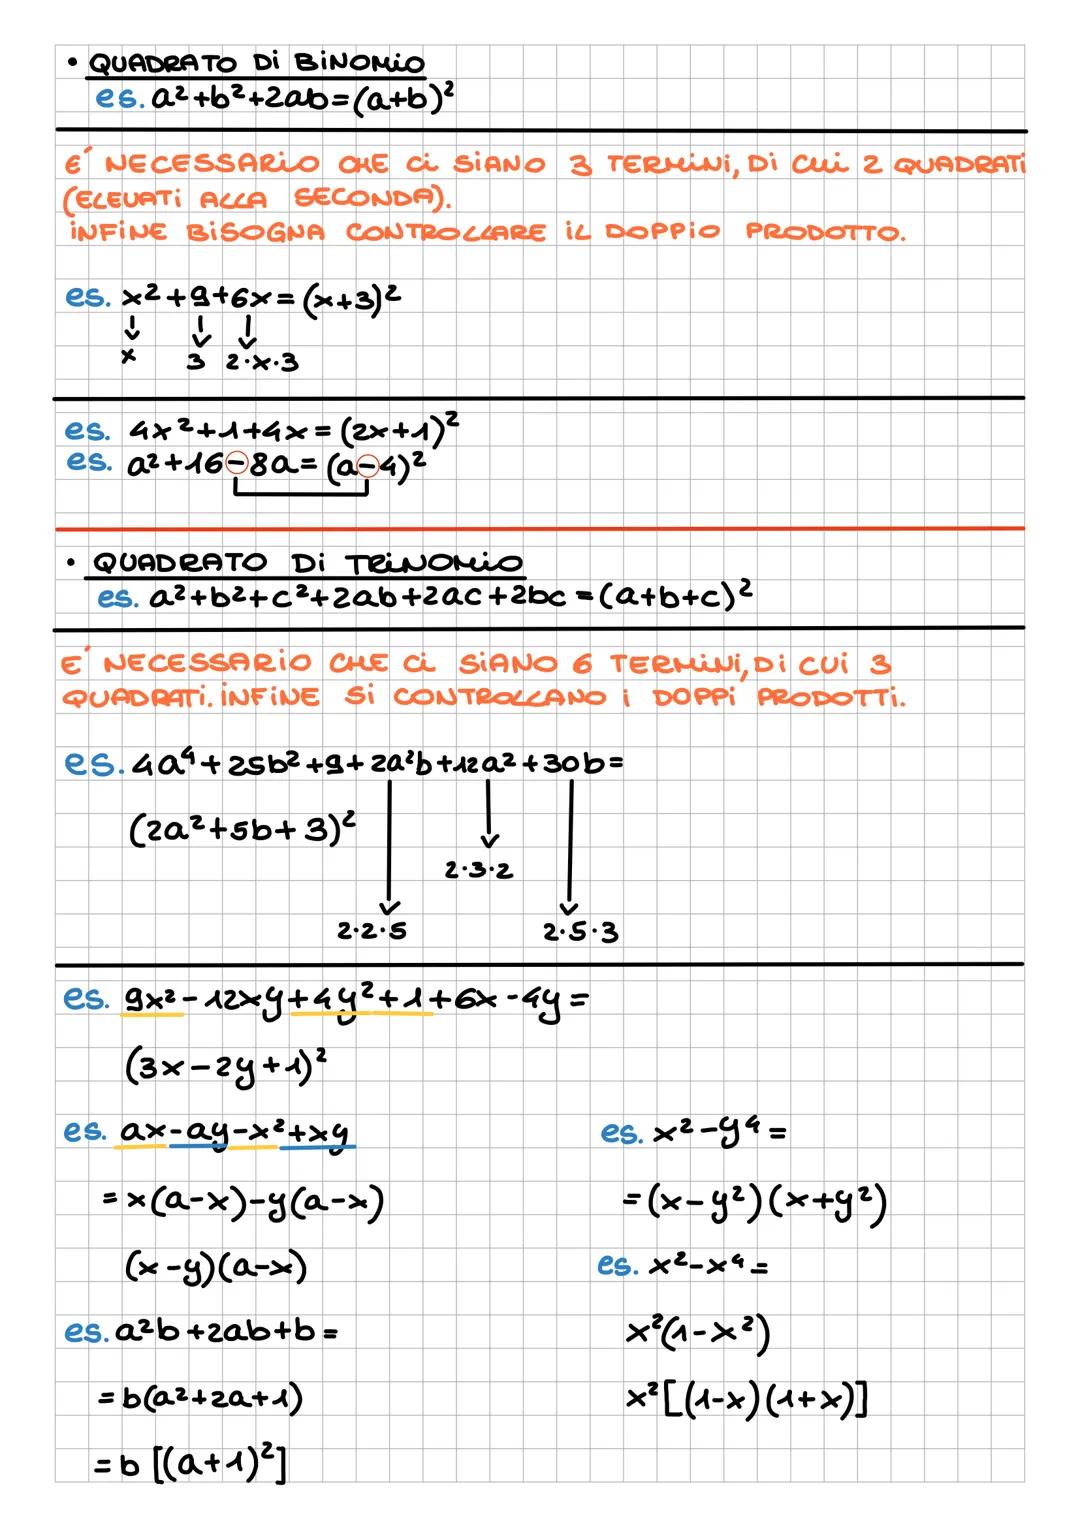 • QUADRATO Di BiNOMiO
es. a²+b²+2ab=(a+b)²
E' NECESSARiO CHE Ci SiANO 3 TERMiNi, Di CUi 2 QUADRATi
(ELEVATi ALLA SECONDA).
iNFiNE BiSOGNA CONTROLLARE iL DOPPiO PRODOTTO.
es. x²+9+6x=(x+3)²
↓ ↓ ↓
x 3 2·x·3
es. 4x²+1+4x=(2x+1)²
es. a²+16-8a=(a-4)²
• QUADRATO Di TRiNOMiO
es. a²+b²+c²+2ab+2ac+2bc=(a+b+c)²
E' NECESSARiO CHE Ci SiANO 6 TERMiNi, Di CUi 3
QUADRATi. iNFiNE Si CONTROLLANO i DOPPi PRODOTTi.
es. 4a⁴+25b²+9+2a²b+12a²+30b=
(2a²+5b+3)²
2·3·2
2·2·5 2·5·3
es. 9x²-12xy+4y²+1+6x-4y=
(3x-2y+1)²
es. ax-ay-x²+xy
=x(a-x)-y(a-x)
(x-y)(a-x)
es. a²b+2ab+b=
=b(a²+2a+1)
=b [(a+1)²]
es. x²-y⁴=
=(x-y²)(x+y²)
es. x²-x⁴=
x²(1-x²)
x²[(1-x)(1+x)]